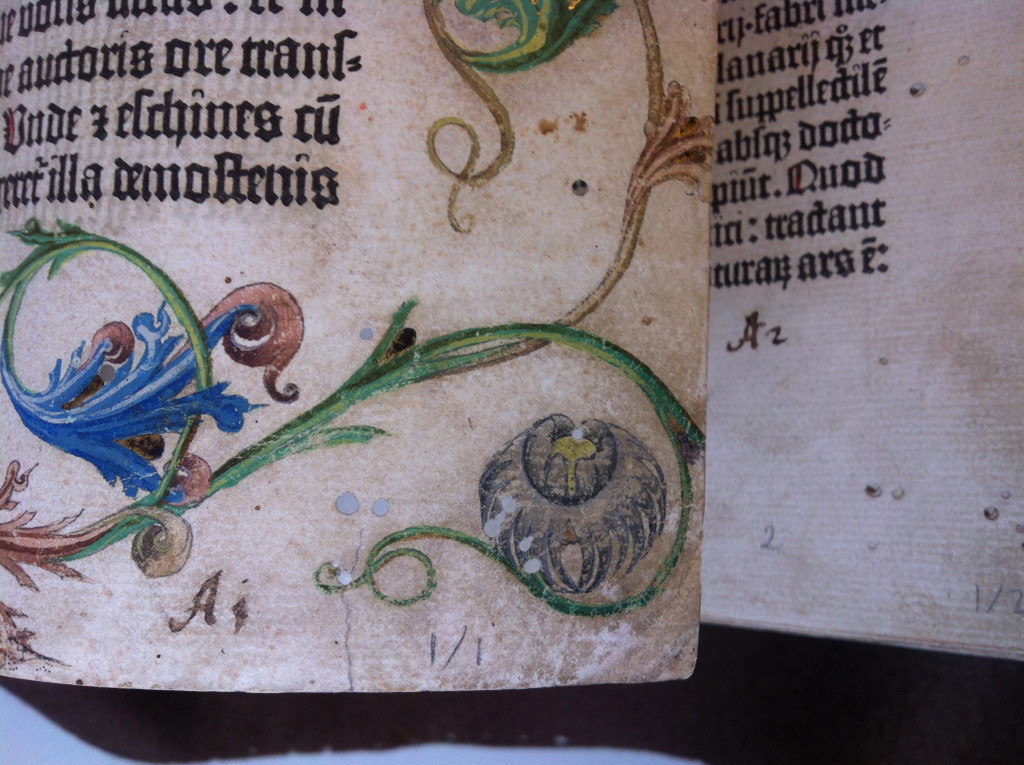 auctoris ore trans⸗
Unde ⁊ eschines cū
illa demostenis
A i
1/1
rij. fabri me⸗
lanarij qꝫ et
suppellectilē
absqꝫ docto⸗
piūt. Quod
ici : tractant
turaꝝ ars ē:
A 2
2
1/2